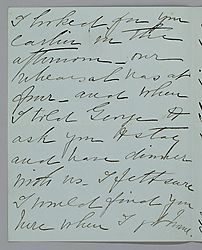 I looked for you
earlier in the
afternoon - our
rehearsal was at
four - and when
I told George to
ask you to stay
and have dinner
with us. I felt sure
I would find you
here when I